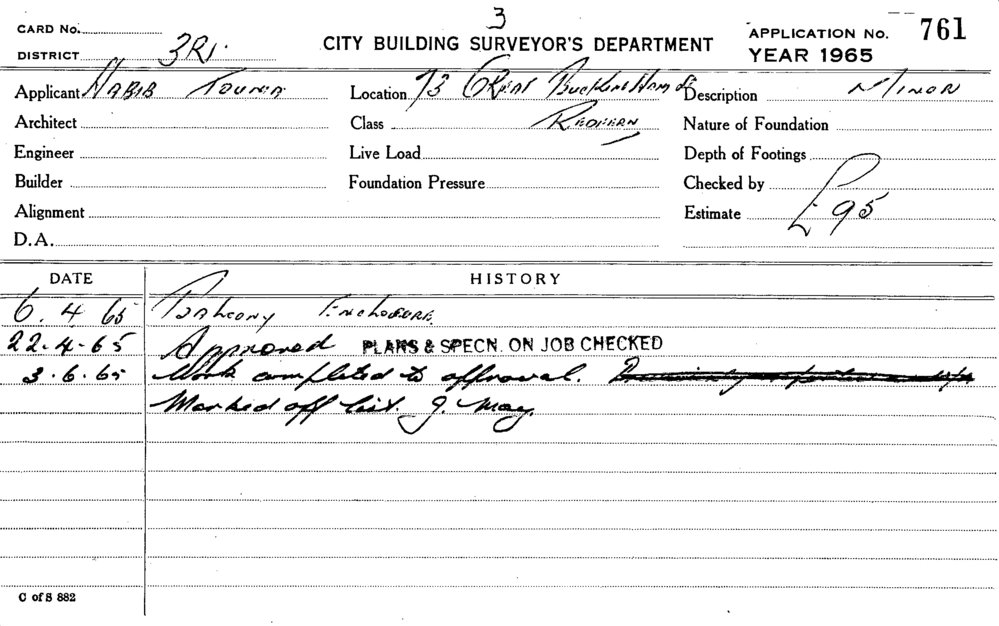 3
CARD No.
DISTRICT 3R1.
CITY BUILDING SURVEYOR'S DEPARTMENT
APPLICATION No. 761
YEAR 1965
Applicant HABIB TOUMA Location 73 GREAT BUCKINGHAM St Description MINOR
Architect Class REDFERN Nature of Foundation
Engineer Live Load Depth of Footings
Builder Foundation Pressure Checked by
Alignment Estimate £95
D.A.
DATE HISTORY
6.4 65 BALCONY ENCLOSURE.
22.4.65 Approved PLANS & SPECN. ON JOB CHECKED
3.6.65 Work completed to approval.
Marked off list. J. May.
C of S 882